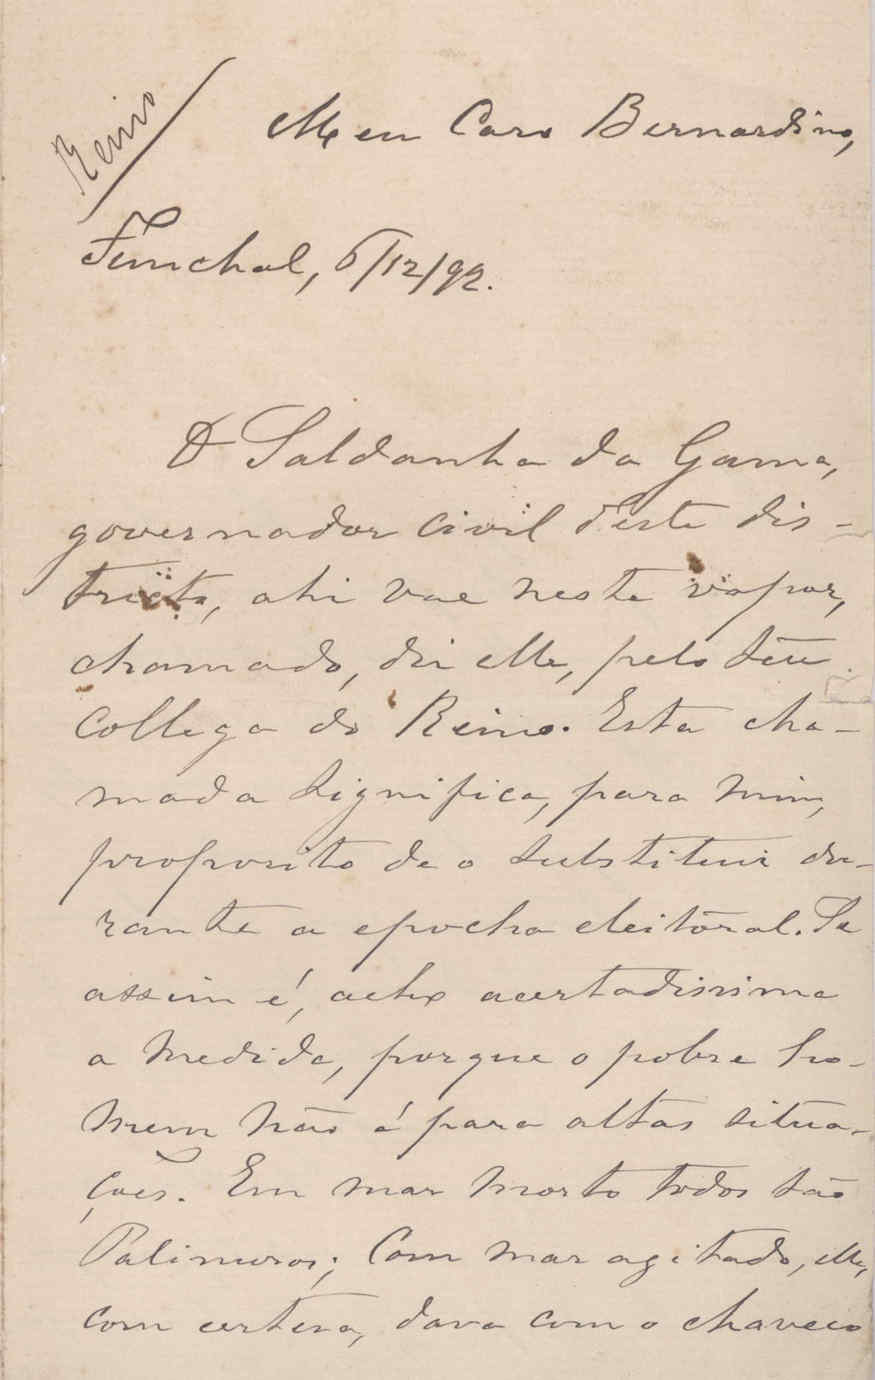 Reino
Meu Caro Bernardino,
Funchal, 6/12/92.
O Saldanha da Gama,
governador civil d'este dis-
tricto, ahi vae neste vapor,
chamado, diz elle, pelo seu
collega do Reino. Esta cha-
mada significa, para mim,
proposito de o substituir du-
rante a epocha eleitoral. Se
assim é, acho acertadissima
a medida, porque o pobre ho-
mem não é para altas situa-
ções. Em mar morto todos são
Palinuros; Com mar agitado, elle,
com certeza, dava com o chaveco